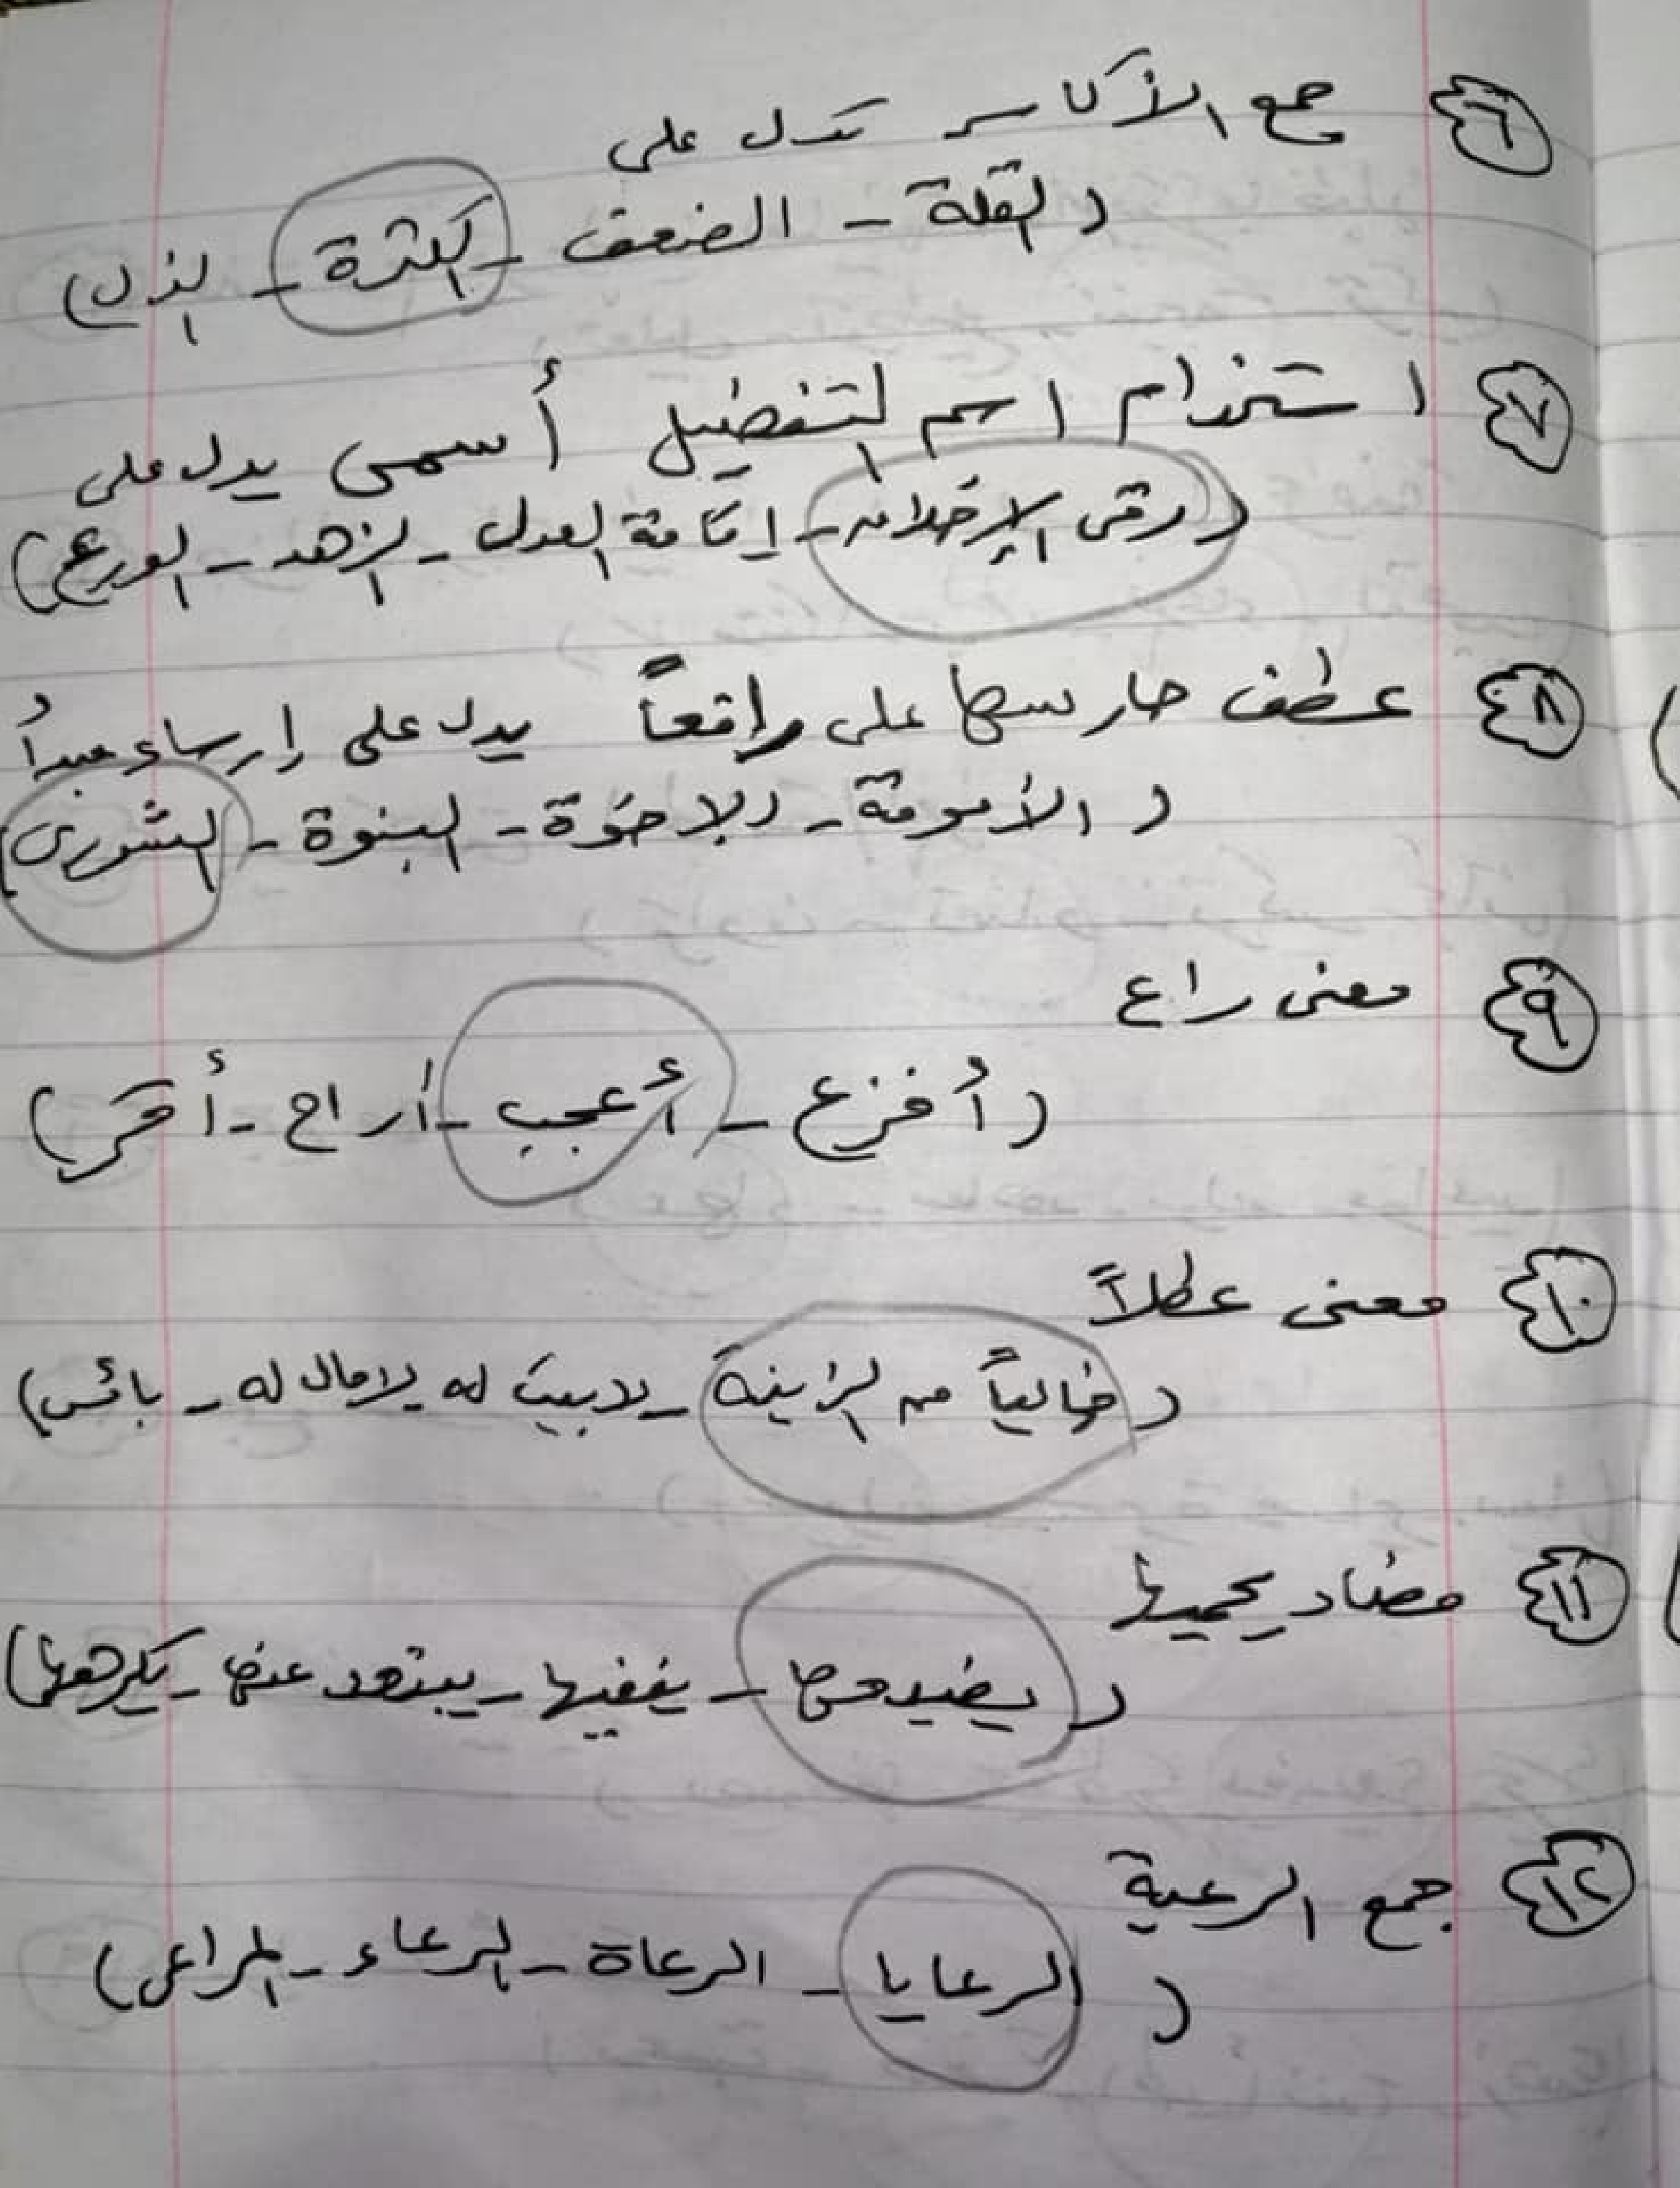 ٦ جمع الأكاسر تدل على
(القلة - الضعف - الكثرة - الذل)
٧ استخدام اسم التفضيل أسمى يدل على
(رقى الإخلاص - إقامة العدل - الزهد - الورع)
٨ عطف حارسها على رافعاً يدل على إرساء مبدأ
(الأمومة - الإخوة - البنوة - الشورى)
٩ معنى راع
(أفزع - أعجب - أراح - أقر)
١٠ معنى عطلاً
(خالياً من الزينة - لا بيت له لا مال له - بائس)
١١ مضاد يحميها
(يضيعها - يخفيها - يبتعد عنها - يكرهها)
١٢ جمع الرعية
(الرعايا - الرعاة - الرعاء - المراعى)